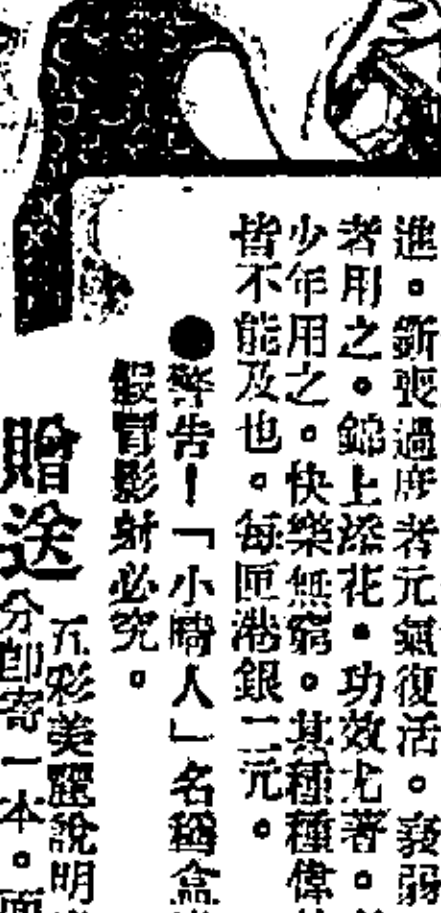 進。斵喪過度者元氣復活。衰弱
者用之。錦上添花。功效尤著。
少年用之。快樂無窮。其種種偉
皆不能及也。每匣港銀二元。
●警告!「小疇人」名稱盒
假冒影射必究。
贈送
五彩美麗說明
分卽寄一本。